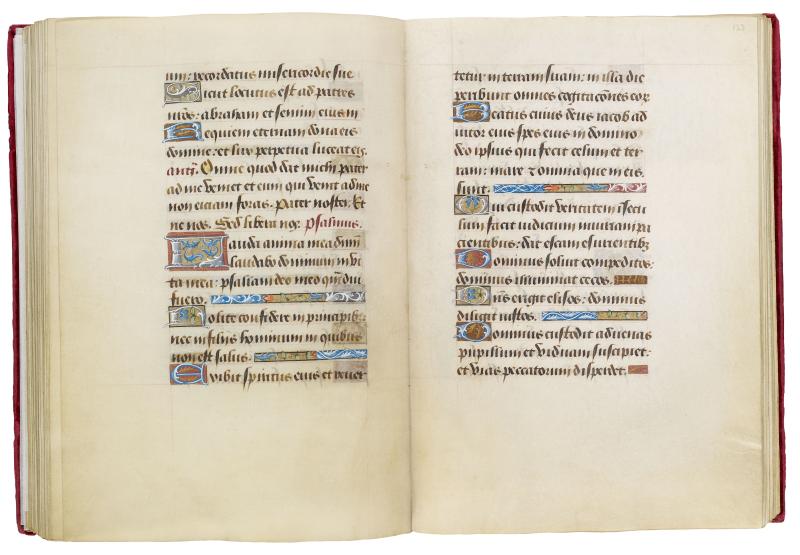 um: recordatus misericordie sue
Sicut locutus est ad patres
nr̄os: abraham et semini eius in
Requiem eternam dona eis
domine: et lux perpetua luceat eis.
antī. Omne quod dat michi pater
ad me veniet et eum qui venit ad me
non eiciam foras. Pater noster. Et
ne nos. Sed libera nos. psalmus.
Lauda anima mea dnm̄
laudabo dominum in vi
ta mea: psallam deo meo qm̄ diu
fuero.
Nolite confidere in principib:
nec in filijs hominum in quibus
non est salus.
Exibit spiritus eius et reuer
123
tetur in terram suam: in illa die
peribunt omnes cogitacōnes eor
Beatus cuius deus iacob ad
iutor eius spes eius in domino
deo ipsius qui fecit celum et ter
ram: mare ⁊ omnia que in eis
sunt.
Qui custodit veritatem i secu
lum facit iudicium iniuriam pa
cientibus: dat escam esurientibȝ
Dominus soluit compeditos:
dominus illuminat cecos.
Dn̄s erigit elisos: dominus
diligit iustos.
Dominus custodit aduenas
pupillum et viduam suscipiet:
et vias peccatorum disperdet.